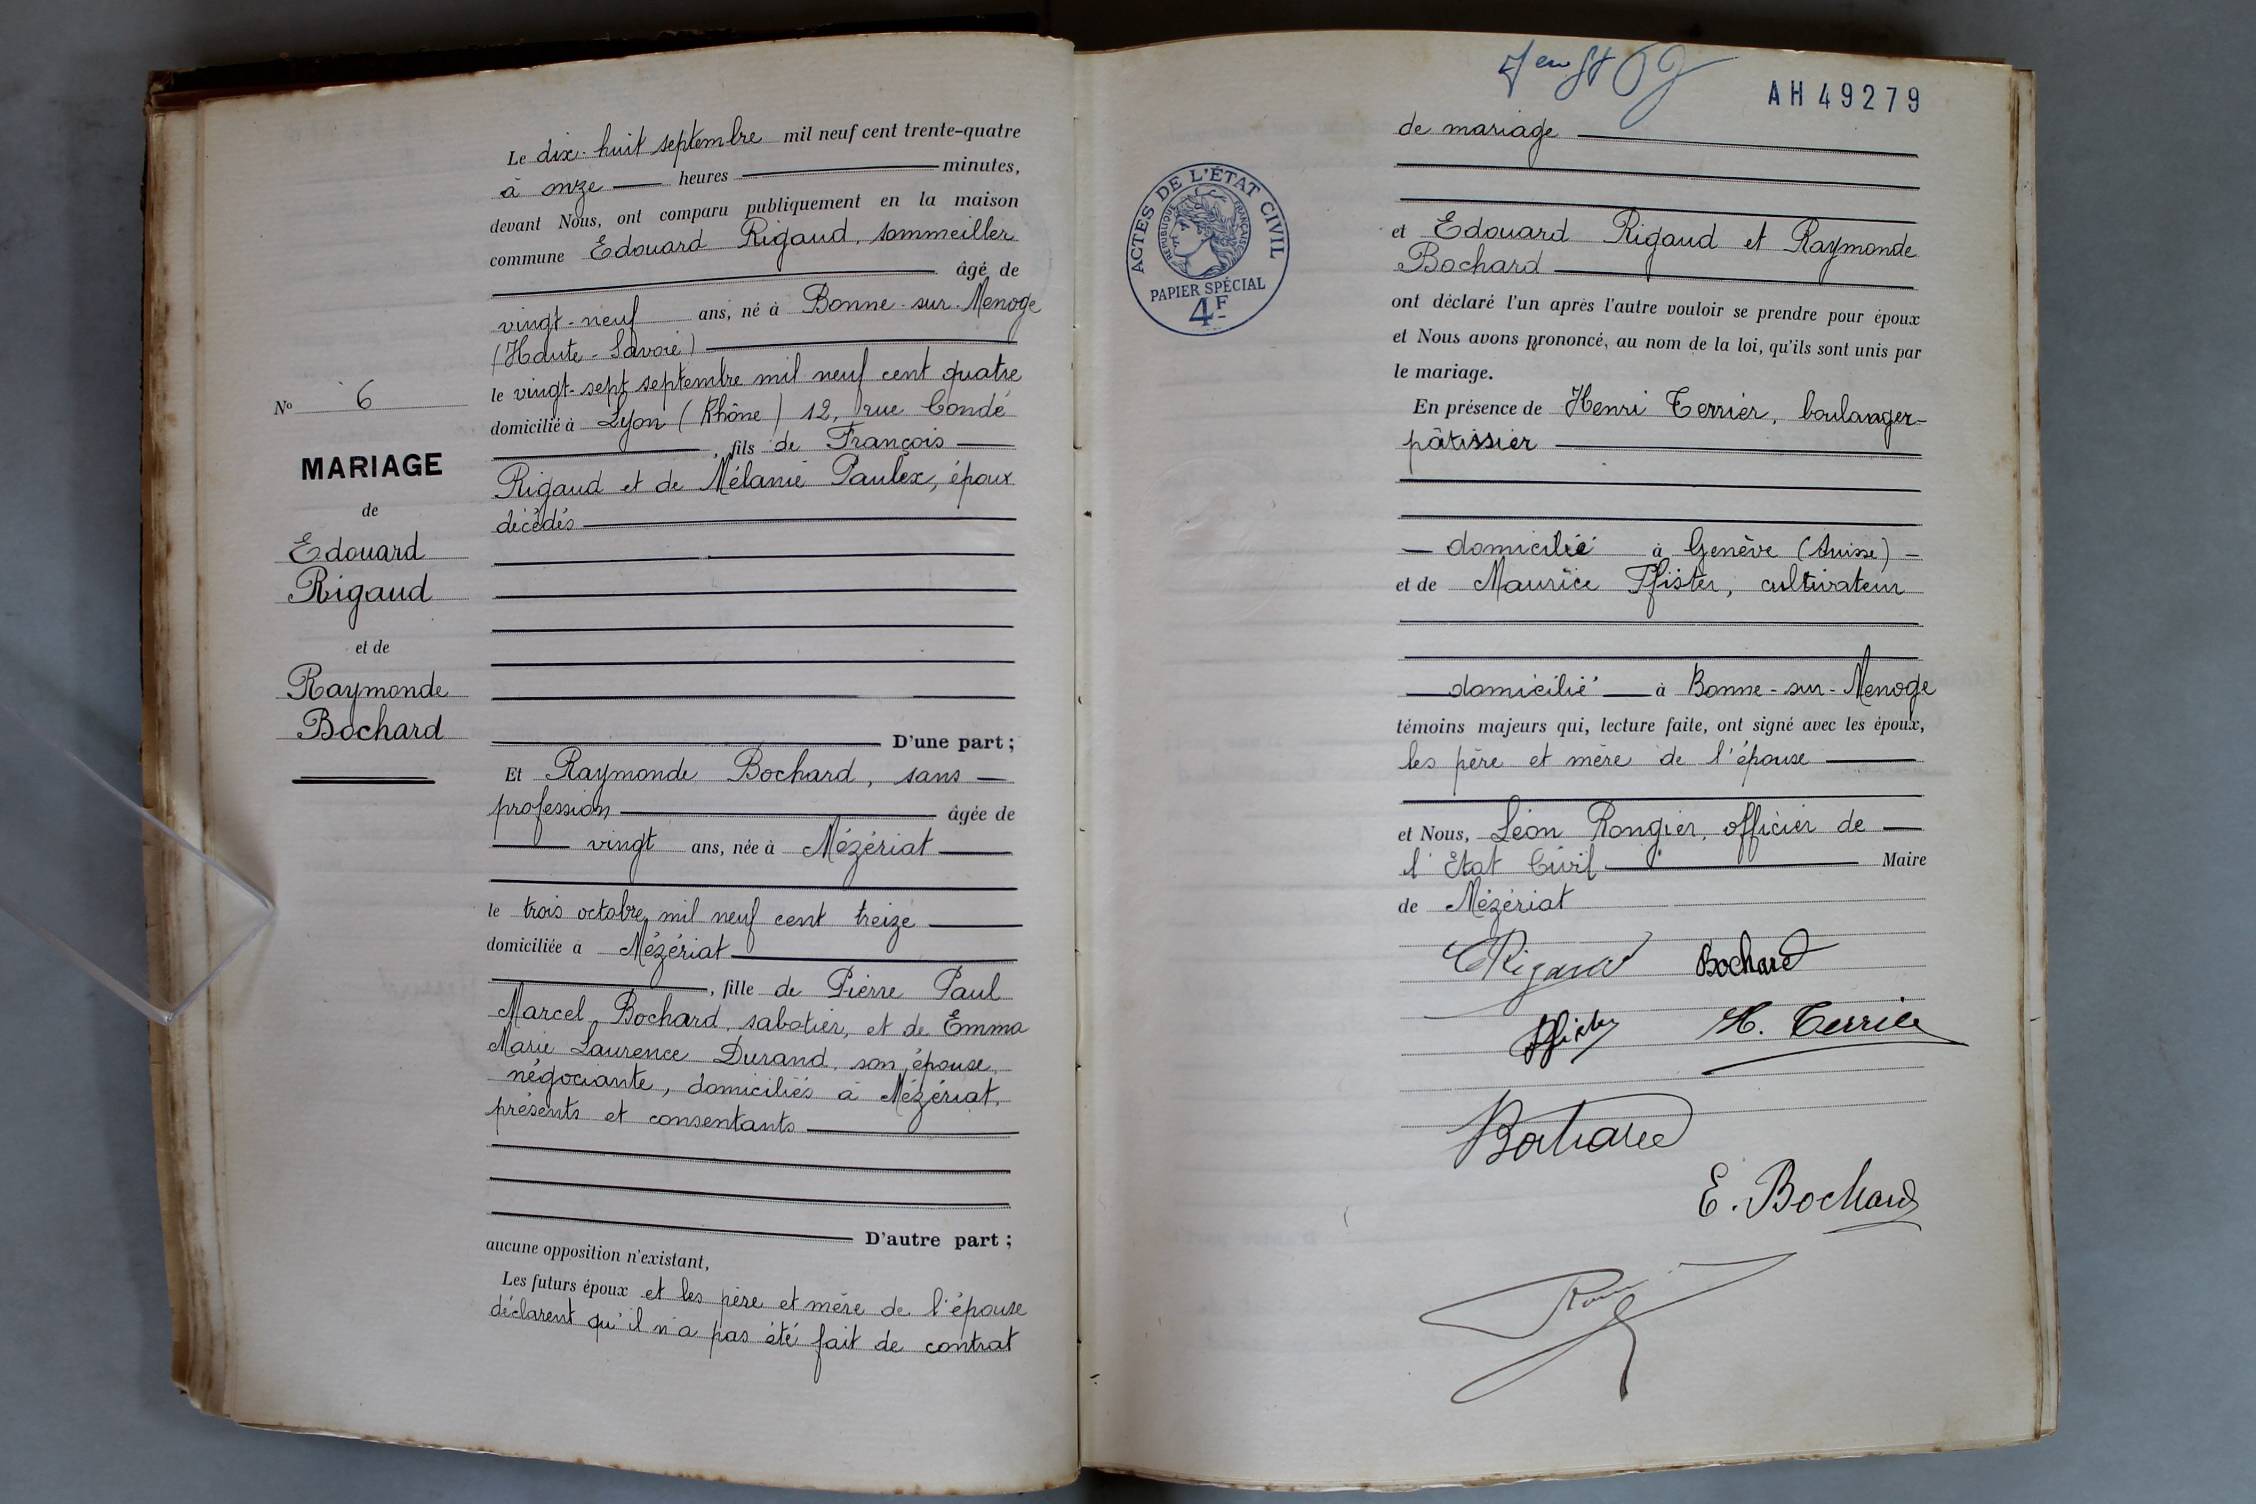 Le dix-huit septembre mil neuf cent trente-quatre
à onze heures minutes,
devant Nous, ont comparu publiquement en la maison
commune Edouard Rigaud, sommeiller
âgé de
vingt-neuf ans, né à Bonne-sur-Menoge
(Haute-Savoie)
le vingt-sept septembre mil neuf cent quatre
domicilié à Lyon (Rhône) 12, rue Condé
, fils de François
Rigaud et de Mélanie Paulex, époux
décédés
No 6
MARIAGE
de
Edouard
Rigaud
et de
Raymonde
Bochard
D'une part;
Et Raymonde Bochard, sans
profession âgée de
vingt ans, née à Mézériat
le trois octobre mil neuf cent treize
domiciliée à Mézériat
, fille de Pierre Paul
Marcel Bochard, sabotier, et de Emma
Marie Laurence Durand, son épouse,
négociante, domiciliés à Mézériat,
présents et consentants
D'autre part;
aucune opposition n'existant,
Les futurs époux et les père et mère de l'épouse
déclarent qu'il n'a pas été fait de contrat
AH 49279
ACTES DE L'ÉTAT CIVIL
RÉPUBLIQUE FRANÇAISE
PAPIER SPÉCIAL
4F
de mariage
et Edouard Rigaud et Raymonde
Bochard
ont déclaré l'un après l'autre vouloir se prendre pour époux
et Nous avons prononcé, au nom de la loi, qu'ils sont unis par
le mariage.
En présence de Henri Terrier, boulanger-
pâtissier
domicilié à Genève (Suisse)
et de Maurice Pfister, cultivateur
domicilié à Bonne-sur-Menoge
témoins majeurs qui, lecture faite, ont signé avec les époux,
les père et mère de l'épouse
et Nous, Léon Rongier, officier de
l'Etat Civil Maire
de Mézériat
E Rigaud Bochard
Pfister H. Terrier
Bochard
E. Bochard